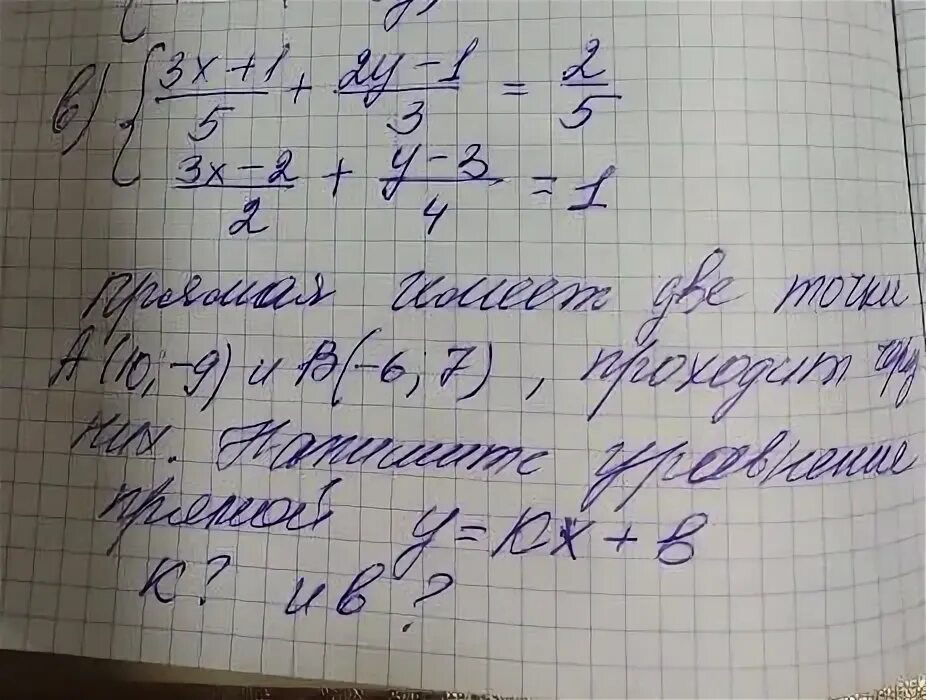 в) { (3x+1)/5 + (2y-1)/3 = 2/5
(3x-2)/2 + (y-3)/4 = 1
прямая имеет две точки
A(10;-9) и B(-6;7), проходит через
них. Напишите уравнение
прямой y=kx+в
к? и в?